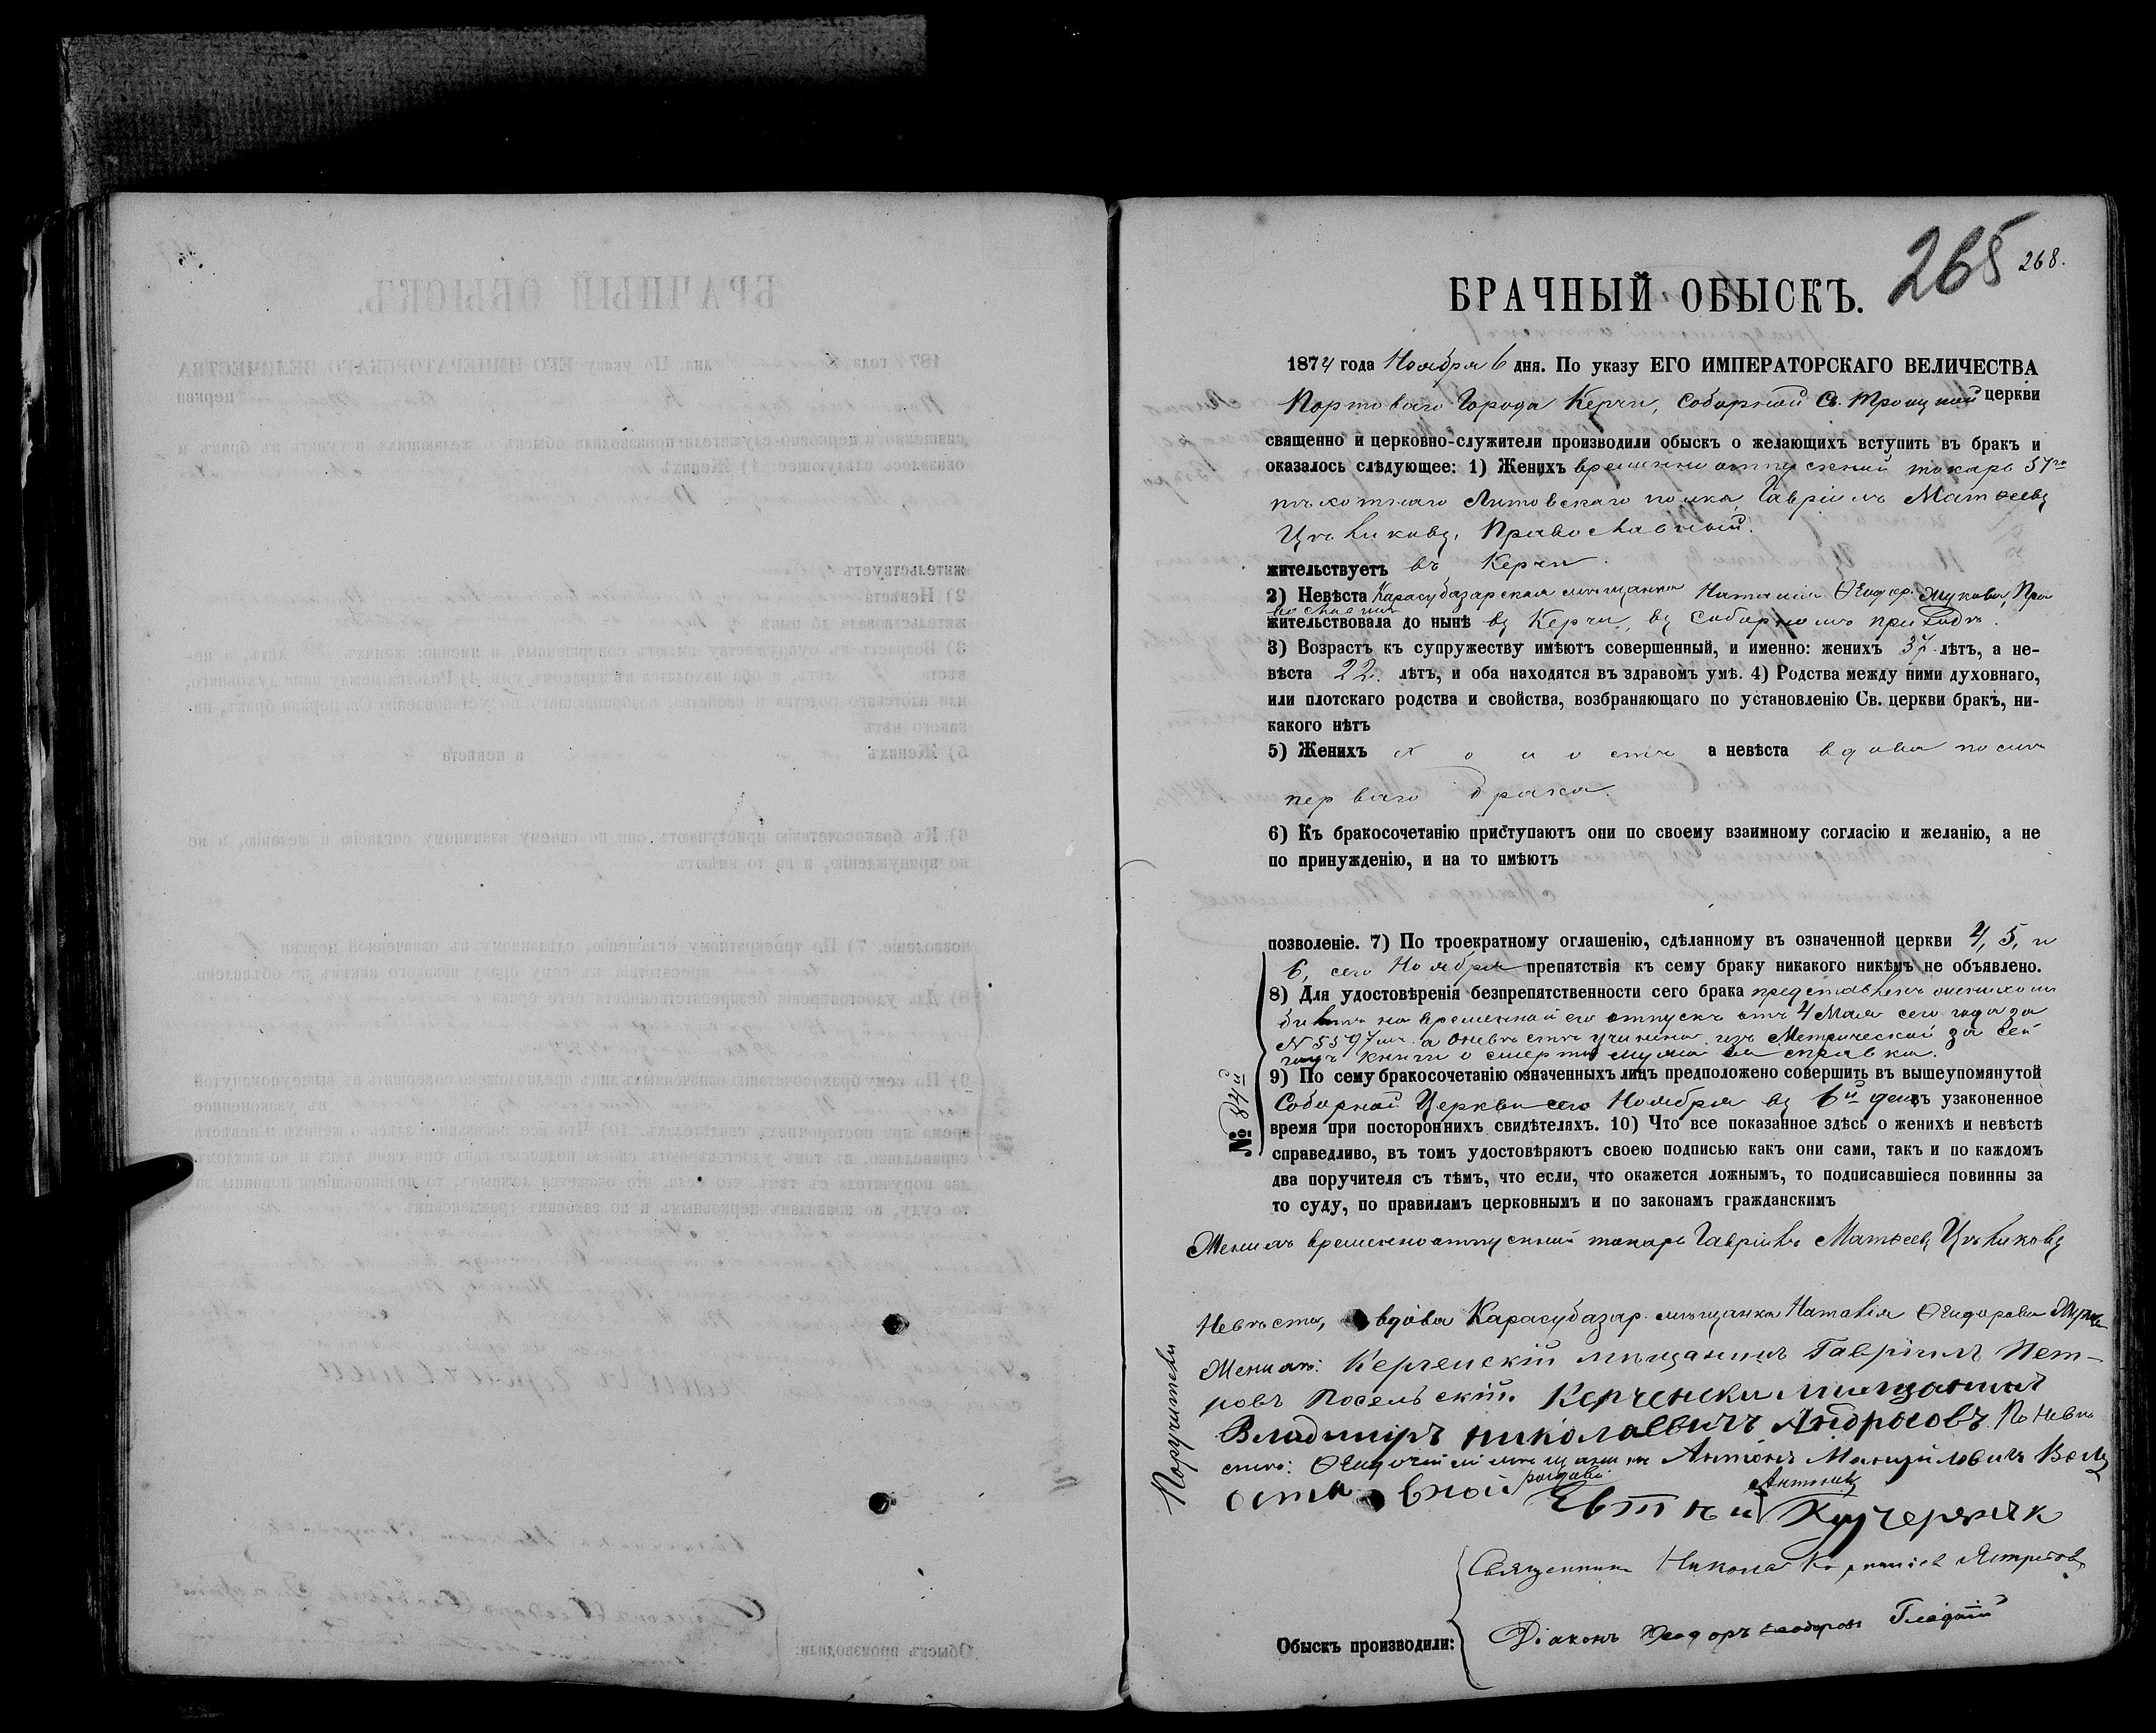 265 268.
БРАЧНЫЙ ОБЫСКЪ.
1874 года Ноября 6 дня. По указу ЕГО ИМПЕРАТОРСКАГО ВЕЛИЧЕСТВА
Портоваго Города Керчи, Соборной Св. Троицкой церкви
священно и церковно-служители производили обыскъ о желающихъ вступить въ бракъ и
оказалось слѣдующее: 1) Женихъ временно отпускной токарь 57го
пѣхотнаго Литовскаго полка, Гавріилъ Матѳеевъ
Цѣликовъ, Православный.
жительствуетъ въ Керчи.
2) Невѣста Карасубазарская мѣщанка Наталія Ѳеодор. Жукова, Пра
вославная
жительствовала до нынѣ въ Керчи, въ Соборномъ приходѣ.
3) Возрастъ къ супружеству имѣютъ совершенный, и именно: женихъ 37 лѣтъ, а не-
вѣста 22. лѣтъ, и оба находятся въ здравомъ умѣ. 4) Родства между ними духовнаго,
или плотскаго родства и свойства, возбраняющаго по установленію Св. церкви бракъ, ни-
какого нѣтъ
5) Женихъ холостъ а невѣста вдова послѣ
перваго брака.
6) Къ бракосочетанію приступаютъ они по своему взаимному согласію и желанію, а не
по принужденію, и на то имѣютъ
позволеніе. 7) По троекратному оглашенію, сдѣланному въ означенной церкви 4, 5, и
6, сего Ноября препятствія къ сему браку никакого никѣмъ не объявлено.
8) Для удостовѣренія безпрепятственности сего брака представленъ женихомъ
билетъ на временной его отпускъ отъ 4 Мая сего года за
№ 5597мъ. а о невѣстѣ учинена изъ Метрической за сей
годъ книги о смерти мужа ея справка.
9) По сему бракосочетанію означенныхъ лицъ предположено совершить въ вышеупомянутой
Соборной Церкви сего Ноября въ 6й день въ узаконенное
время при постороннихъ свидѣтеляхъ. 10) Что все показанное здѣсь о женихѣ и невѣстѣ
справедливо, въ томъ удостовѣряютъ своею подписью какъ они сами, такъ и по каждомъ
два поручителя съ тѣмъ, что если, что окажется ложнымъ, то подписавшіеся повинны за
то суду, по правиламъ церковнымъ и по законамъ гражданскимъ
№ 84й
Женихъ временноотпускной токарь Гавріилъ Матѳеевъ Цѣликовъ
Невѣста, вдова Карасубазар. мѣщанка Наталія Ѳеодорова
Поручители
Женихѣ: Керченскій мѣщанинъ Гавріилъ Пет-
ровъ Посельскій. Керченски мищанинъ
Владиміръ николаевичъ Андросовъ. По Невѣ
стѣ: мѣщанинъ Антонъ
Антоновъ
Кучерянк
Священникъ Николай
Обыскъ производили: Діаконъ Ѳеодоръ